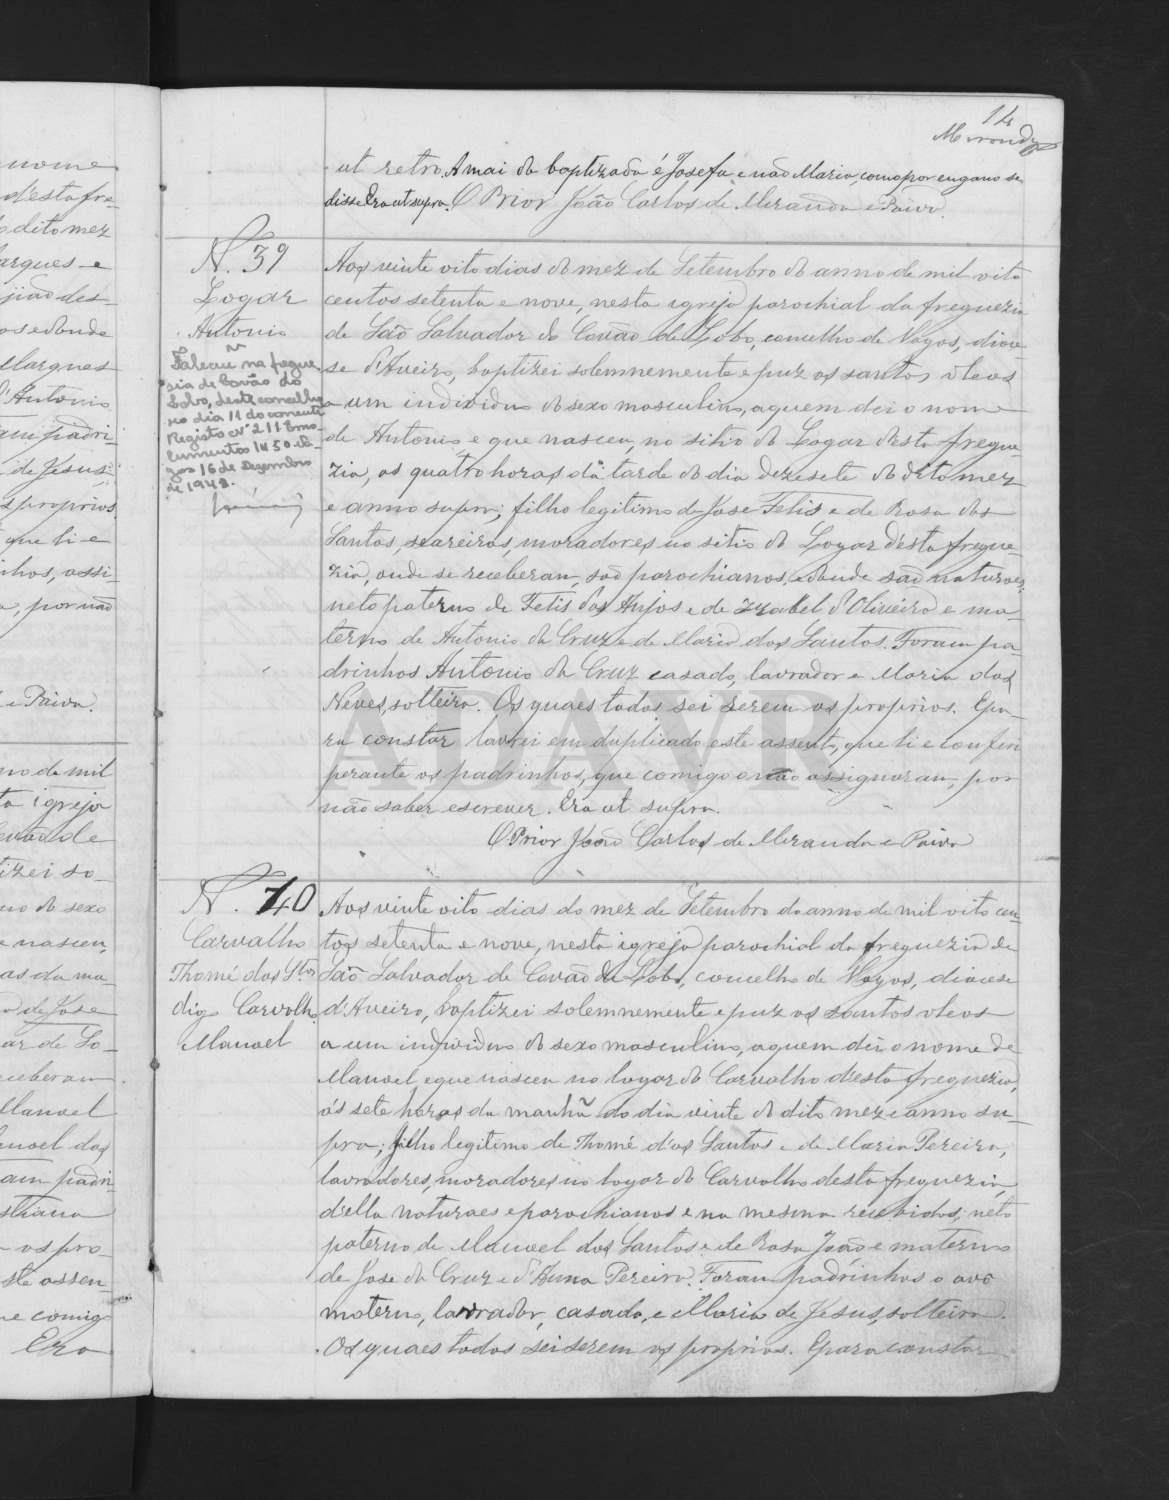 14
Miranda
ut retro. A mai do baptizado é Josefa e não Maria, como por engano se
disse Era ut supra. O Prior João Carlos de Miranda e Paiva.
N. 39
Logar
Antonio
Faleceu na fregue-
sia de Covão do
Lobo, deste concelho
no dia 11 do corrente
Registo Nº 211 Emo-
lumentos 1$50
16 de Dezembro
de 1948.
Aos vinte oito dias do mez de Setembro do anno de mil oito
centos setenta e nove, nesta igreja parochial da freguezia
de São Salvador do Covão do Lobo, concelho de Vagos, dioce-
se d'Aveiro, baptizei solemnemente e puz os santos oleos
a um individuo do sexo masculino, a quem dei o nome
de Antonio e que nasceu, no sitio do Logar desta fregue-
zia, as quatro horas da tarde do dia dezesete do dito mez
e anno supra; filho legitimo de Jose Felis e de Rosa dos
Santos, seareiros, moradores no sitio do Logar desta fregue-
zia, onde se receberam, são parochianos, e donde são naturaes,
neto paterno de Felis dos Anjos e de Izabel d'Oliveira e ma-
terno de Antonio da Cruz e de Maria dos Santos. Foram pa-
drinhos Antonio da Cruz casado, lavrador e Maria das
Neves, solteira. Os quaes todos sei serem os proprios. E pa-
ra constar lavrei em duplicado este assento, que li e conferi
perante os padrinhos, que comigo não assignaram, por
não saber escrever. Era ut supra.
O Prior João Carlos de Miranda e Paiva
N. 40
Carvalho
Thomé dos Stos
digo Carvalho
Manoel
Aos vinte oito dias do mez de Setembro do anno de mil oito cen-
tos setenta e nove, nesta igreja parochial da freguezia de
São Salvador de Covão do Lobo, concelho de Vagos, diocese
d'Aveiro, baptizei solemnemente e puz os santos oleos
a um individuo do sexo masculino, a quem dei o nome de
Manoel, e que nasceu no logar do Carvalho desta freguezia,
ás sete horas da manhã do dia vinte do dito mez e anno su-
pra; filho legitimo de Thomé dos Santos e de Maria Pereira,
lavradores, moradores no logar do Carvalho desta freguezia,
d'ella naturaes e parochianos e na mesma recebidos; neto
paterno de Manoel dos Santos e de Rosa João e materno
de Jose da Cruz e d'Anna Pereira. Foram padrinhos o avô
materno, lavrador, casado, e Maria de Jesus, solteira.
Os quaes todos sei serem os proprios. E para constar
nome
desta fre-
dito mez
arques e
Marques
Antonio
padri-
de Jesus;
proprios
que li e
assi-
por não
e Paiva.
no de mil
ta igreja
tizei so-
no do sexo
nasceu,
as da ma-
de Jose
ar de Lo-
ceberam
Manoel
anoel dos
am padri-
os pro-
ste assen-
e comigo
Era
ADAVR